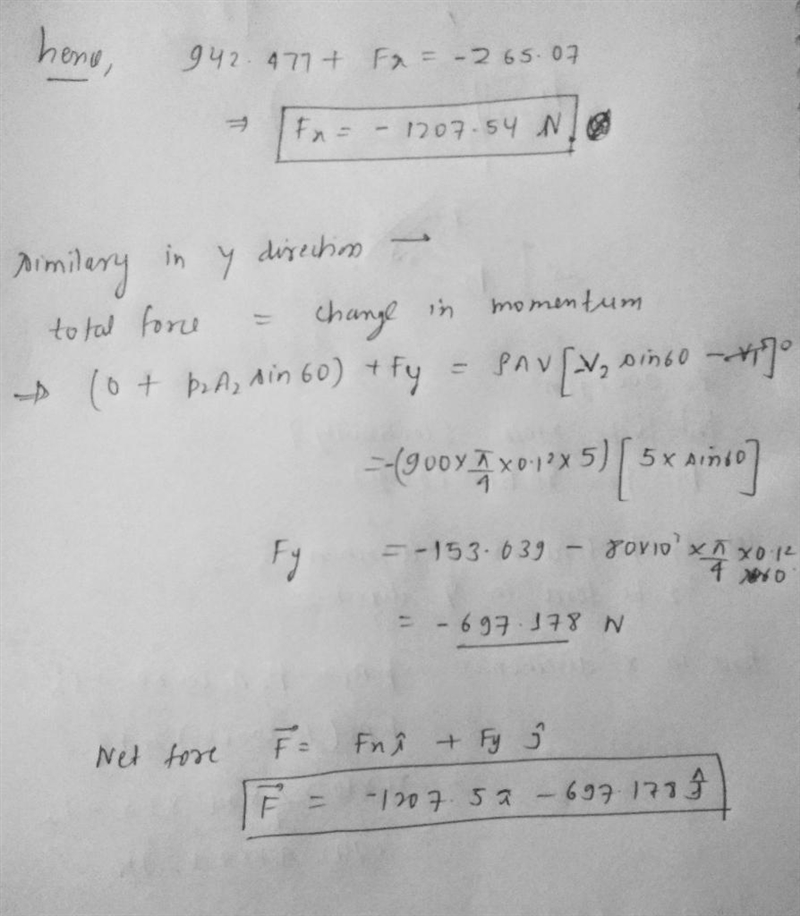 hence, 942.477 + Fx = -265.07
⇒ Fx = - 1207.54 N.
similary in y direction →
total force = change in momentum
⇒ (0 + p₂A₂ sin 60) + Fy = ρAV [-V₂ sin60 - V₁]⁰
= -(900 × π/4 × 0.1² × 5) [5 × sin60]
Fy = -153.039 - 80×10³ × π/4 × 0.1²
= -697.178 N
Net fore F⃗ = Fx î + Fy ĵ
F⃗ = -1207.5 î - 697.178 ĵ